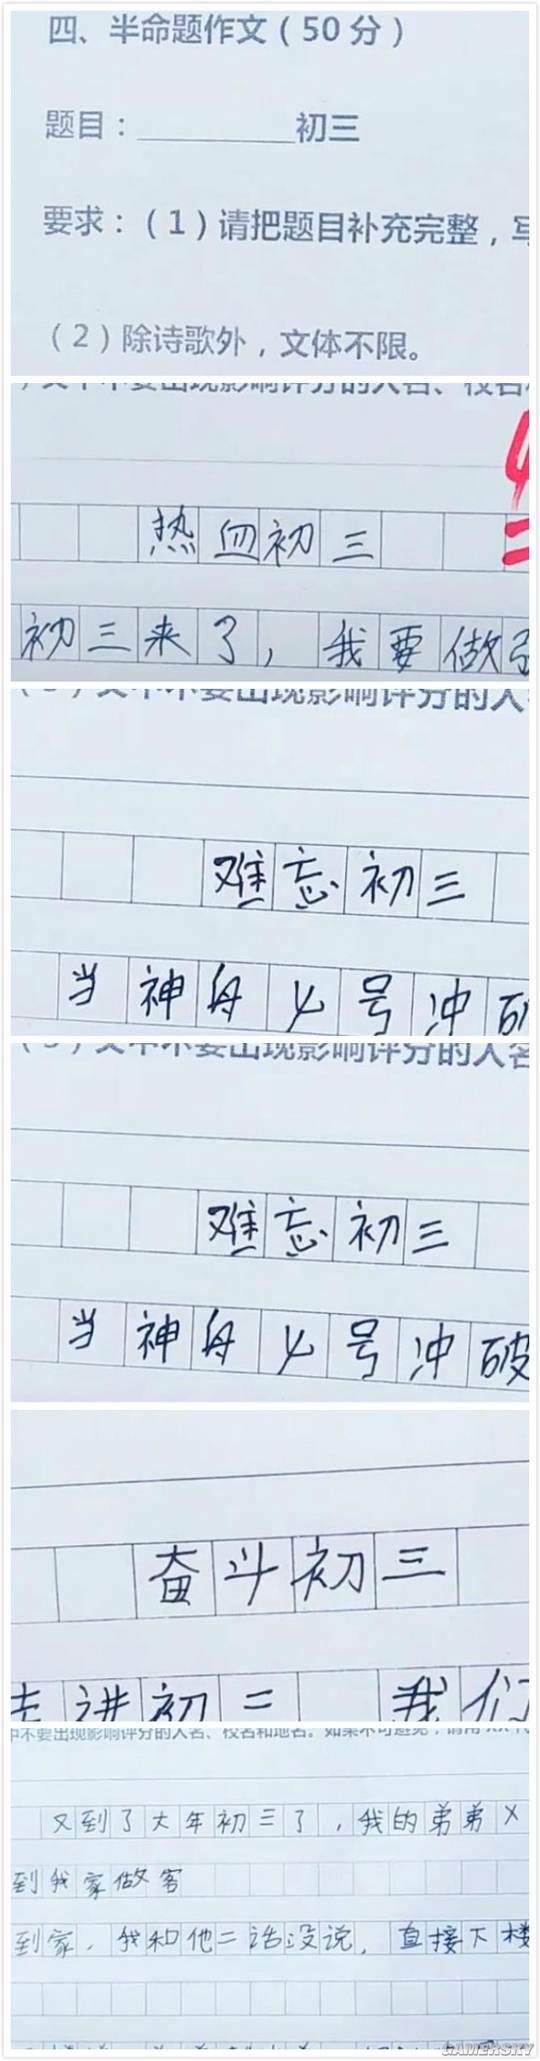 四、半命题作文(50分)
题目:__________初三
要求:(1)请把题目补充完整,写
(2)除诗歌外,文体不限。
热血初三
初三来了,我要做
影响评分的人
难忘初三
当神舟七号冲破
影响评分的人名
难忘初三
当神舟七号冲破
奋斗初三
走进初三 我们
中不要出现影响评分的人名、校名和地名。如果不可避免,请用XX代
又到了大年初三了,我的弟弟X
到我家做客
到家,我和他二话没说,直接下楼
GAMERSKY